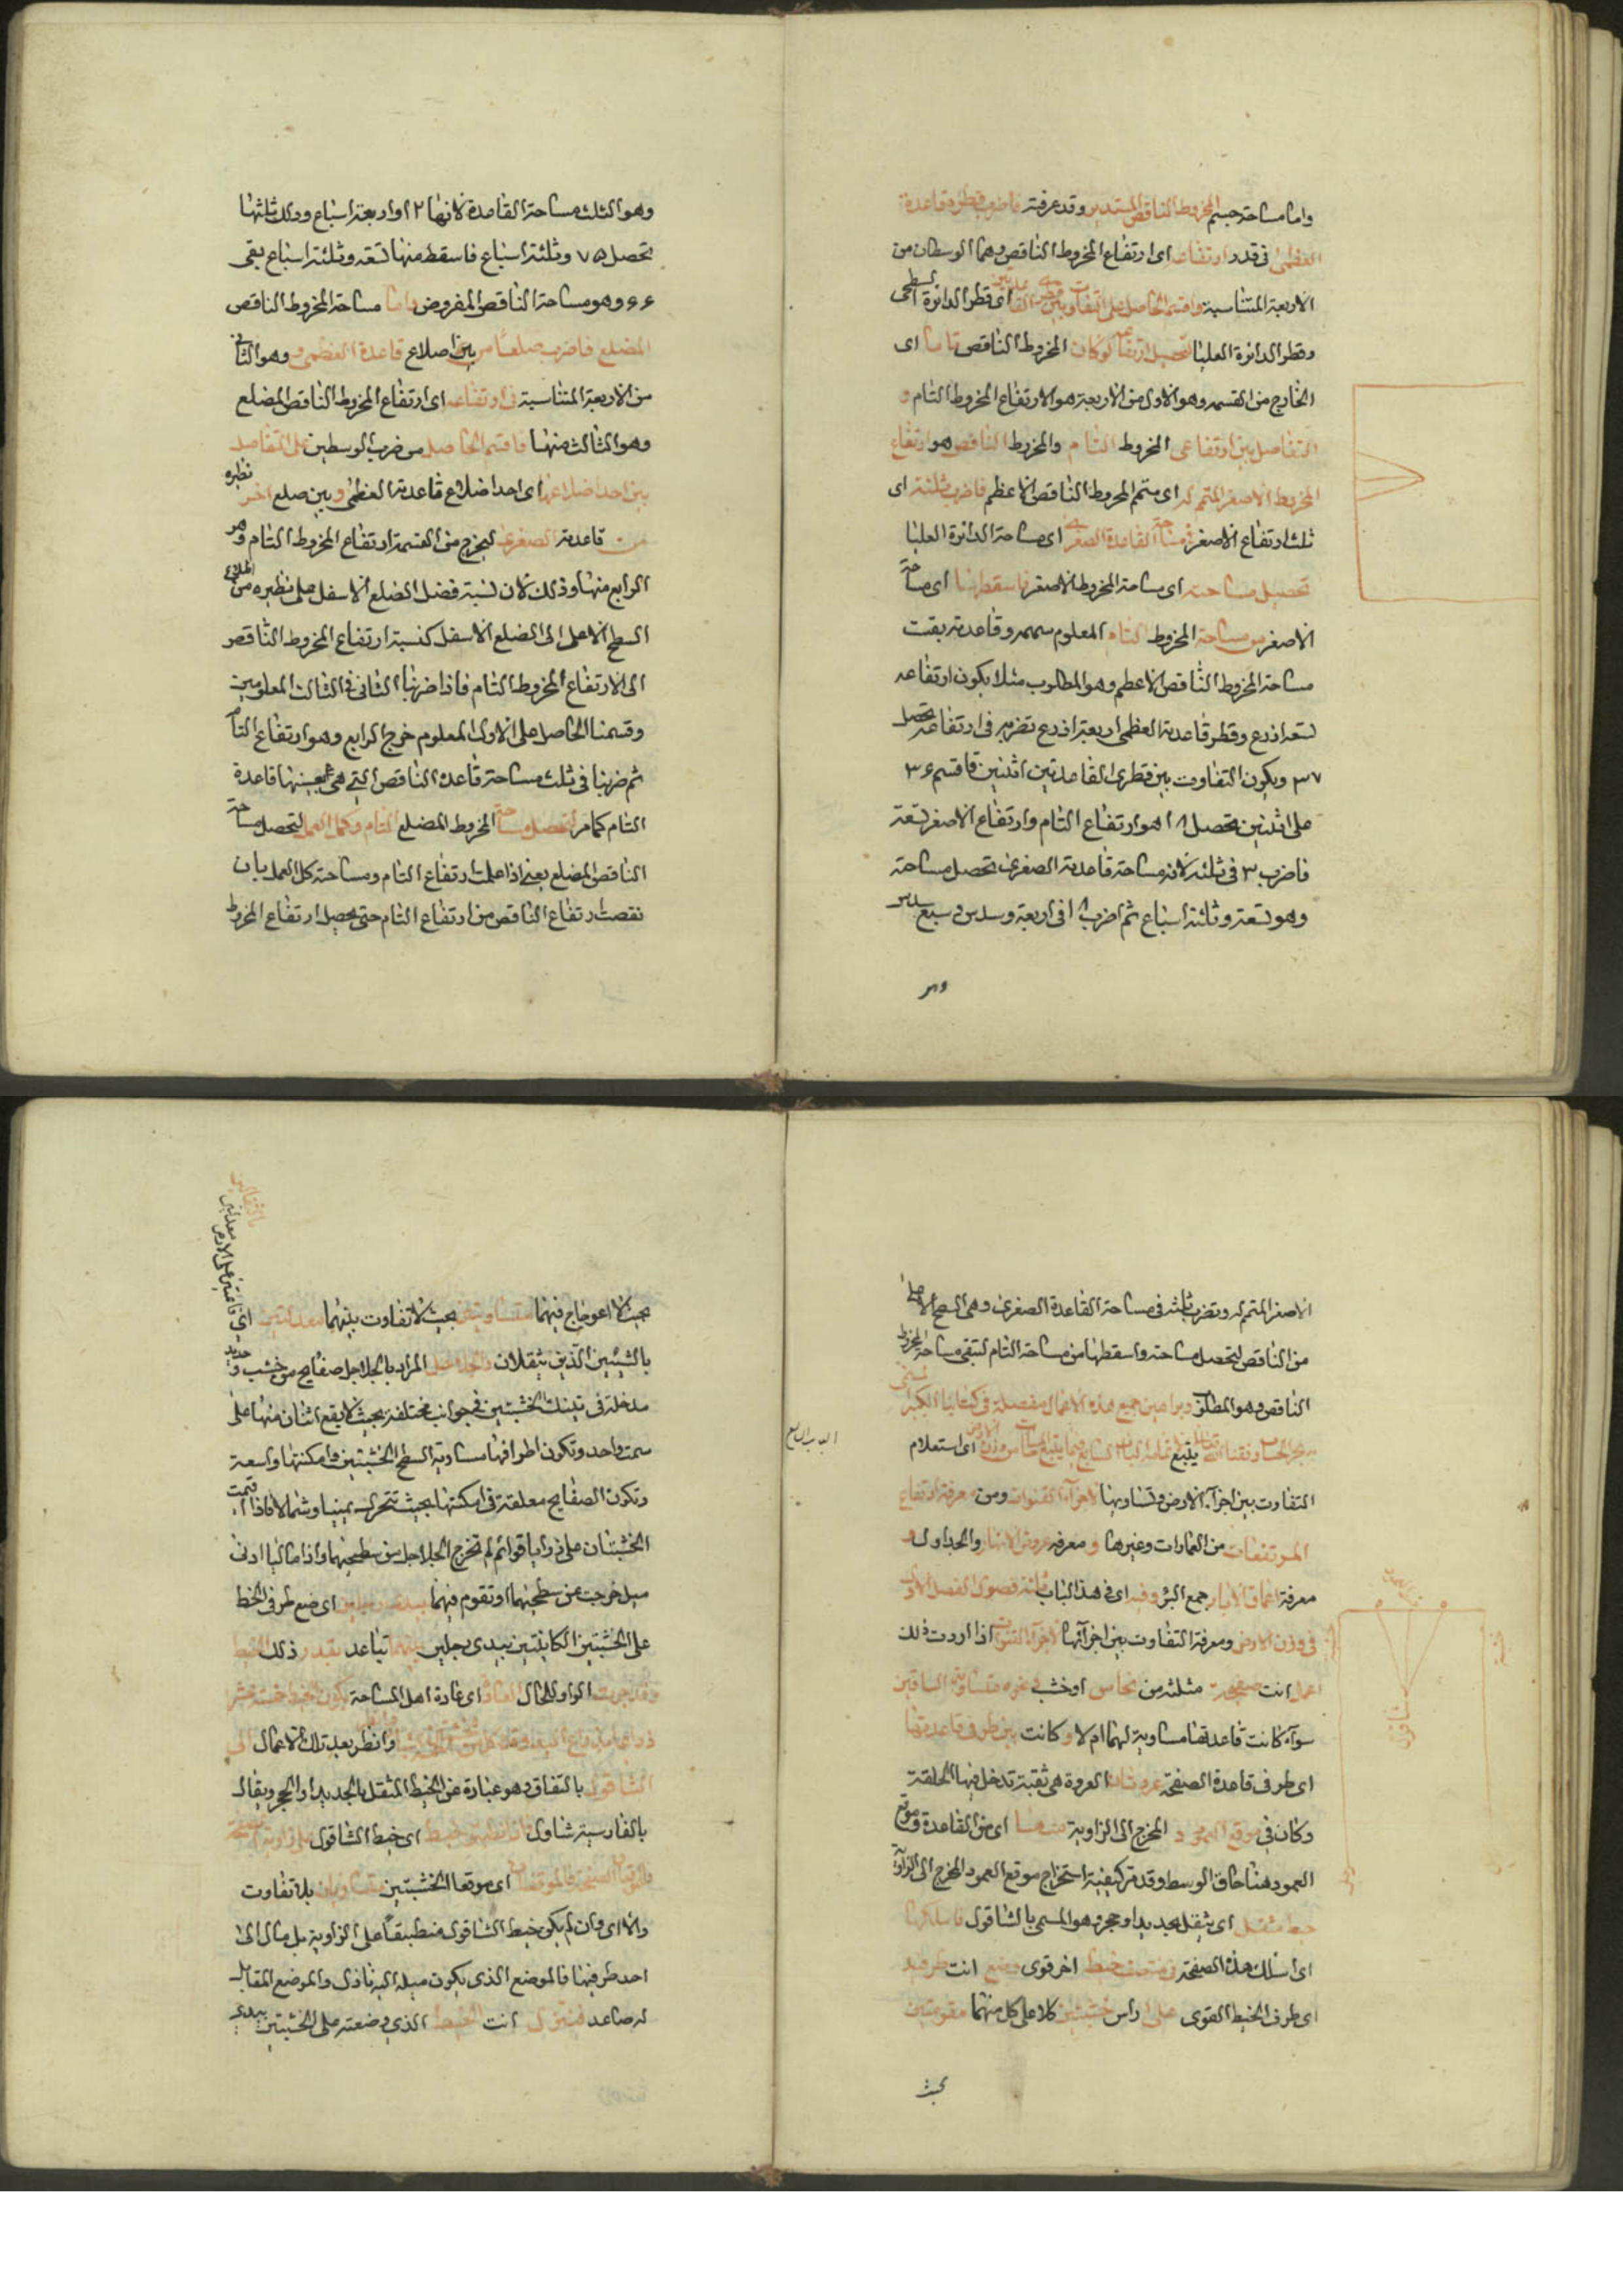 واما مساحة جسم المخروط الناقص المستدير وقد عرفته فاضرب قطر قاعدة
العظمى فى قدر ارتفاعه اى ارتفاع المخروط الناقص وهما الوسطان من
الاربعة المتناسبة واقسم الحاصل على التفاوت بين قطرى القاعدتين اى قطر الدائرة السطحى
وقطر الدائرة العليا لتحصيل ارتفاعه لو كان المخروط الناقص تاما اى
الخارج من القسمة وهو الاول من الاربعة هو الارتفاع المخروط التام و
التفاضل بين ارتفاعى المخروط التام والمخروط الناقص هو ارتفاع
المخروط الاصغر المتمم له اى متمم المخروط الناقص الاعظم فاضرب ثلثه اى
ثلث ارتفاع الاصغر فى مساحة القاعدة الصغرى اى مساحة الدائرة العليا
تحصيل مساحته اى مساحة المخروط الاصغر فاسقطها اى مساحة
الاصغر من مساحة المخروط التام المعلوم سهمه وقاعدته بقيت
مساحة المخروط الناقص الاعظم وهو المطلوب مثلا يكون ارتفاعه
تسعة اذرع وقطر قاعدته العظمى اربعة اذرع تضربه فى ارتفاعه تحصل
٣٧ ويكون التفاوت بين قطرى القاعدتين اثنين فاقسم ٣۶
على اثنين تحصل ١٨ هو ارتفاع التام وارتفاع الاصغر تسعة
فاضرب ٣ فى ثلثه لانه مساحة قاعدته الصغرى تحصل مساحته
وهو تسعة وثلثة اسباع ثم اضرب ١٨ فى اربعة وسدس وسبع سدس
وهو
وهو الثلث مساحة القاعدة لانها ١٢ واربعة اسباع وذلك ثلثها
تحصل ٧٥ وثلثة اسباع فاسقط منها تسعة وثلثة اسباع يبقى
۶۶ وهو مساحة الناقص المفروض واما مساحة المخروط الناقص
المضلع فاضرب ضلعا من بين اضلاع قاعدة العظمى وهو الثانى
من الاربعة المتناسبة فى ارتفاعه اى ارتفاع المخروط الناقص المضلع
وهو الثالث منها فاقسم الحاصل من ضرب الوسطين على التفاضل
بين احد اضلاعها اى احد اضلاع قاعدته العظمى وبين ضلع اخر نظيره
من قاعدته الصغرى ليخرج من القسمة ارتفاع المخروط التام وهو
الرابع منها وذلك لان نسبة فضل الضلع الاسفل على نظيره من اضلاع
السطح الاعلى الى الضلع الاسفل كنسبة ارتفاع المخروط الناقص
الى الارتفاع المخروط التام فاذا ضربنا الثانى فى الثالث المعلومين
وقسمنا الحاصل على الاول المعلوم خرج الرابع وهو ارتفاع التام
ثم ضربنا فى ثلث مساحة قاعدة الناقص التى هى بعينها قاعدة
التام كما مر لتحصل مساحة المخروط المضلع التام وكمل العمل لتحصل مساحة
الناقص المضلع يعنى اذا علمت ارتفاع التام ومساحته كل العمل بان
نقصت ارتفاع الناقص من ارتفاع التام حتى يحصل ارتفاع المخروط
الاصغر المتمم له وتضرب ثلثه فى مساحة القاعدة الصغرى وهى السطح الاعلى
من الناقص لتحصل مساحته واسقطها من مساحة التام لتبقى مساحة المخروط
الناقص وهو المطلوب وبراهين جميع هذه الاعمال مفصلة فى كتابنا الكبير المسمى
ببحر الحساب وفقنا الله اى استعلام
التفاوت بين اجزاء الارض وتساويها لاجراء القنوات ومن معرفة ارتفاع
المرتفعات من العمارات وغيرها و معرفة عروض الانهار والجداول و
معرفة اعماق الابار جمع البئر وفيه اى فى هذا الباب ثلثة فصول الفصل الاول
فى وزن الارض ومعرفة التفاوت بين اجزائها لاجراء القنوات اذا اردت ذلك
اعمل انت صفيحة مثلثة من نحاس او خشب او نحوه متساوية الساقين
سواء كانت قاعدتها مساوية لهما ام لا و كانت بين طرفى قاعدتها
اى طرفى قاعدة الصفحة عروتان العروة هى ثقبة تدخل فيها الحلقة
وكان فى موقع العمود المخرج الى الزاوية منها اى من القاعدة وموقع
العمود هنا حاق الوسط وقد مر كيفية استخراج موقع العمود المخرج الى الزاوية
خيط مثقل اى يثقل بحديد او حجر وهو المسمى بالشاقول فاسلكها
اى اسلك هذه الصفحة فى منتصف خيط اخر قوى وضع انت طرفيه
اى طرفى الخيط القوى على راس خشبتين كلا على كل منهما مقومتين
بحيث
الباب السابع
بحيث لا اعوجاج فيهما متساويتين بحيث لا تفاوت بينهما معدلتين اى قائمتين على الارض
بالشيئين الذين يثقلان والجلاجل المراد بالجلاجل صفايح من خشب وحديد
مدخلة فى تينك الخشبتين فى جوانب مختلفة بحيث لا يقع اثنان منها على
سمت واحد وتكون اطرافها مساوية السطح الخشبتين وامكنتها واسعة
وتكون الصفايح معلقة فى امكنتها بحيث تتحرك يمينا وشمالا فاذا اقيمت
الخشبتان على زوايا قوائم لم تخرج الجلاجل من سطحيهما واذا مالتا ادنى
ميل خرجت عن سطحيهما او تقوم فيهما بيدى رجلين اى ضع طرفى الخط
على الخشبتين الكائنتين بيدى رجلين بينهما تباعد بقدر ذلك الخيط
وقد جرت الواو للحال العادة اى عادة اهل المساحة بكون الخيط خمسة عشر
ذراعا وانظر بعد تلك الاعمال الى
الشاقول بالتفاق وهو عبارة عن الخيط المثقل بالحديد او الحجر ويقال
بالفارسية شاول فان انطبق خيط اى خيط الشاقول على زاوية الصفحة
فالموقعان اى موقعا الخشبتين متساويان بلا تفاوت
والا اى وان لم يكن خيط الشاقول منطبقا على الزاوية بل مال الى
احد طرفيها فالموضع الذى يكون ميله اليه نازل والموضع المقابل
له صاعد فتنزل انت الخيط الذى وضعته على الخشبتين بيدى